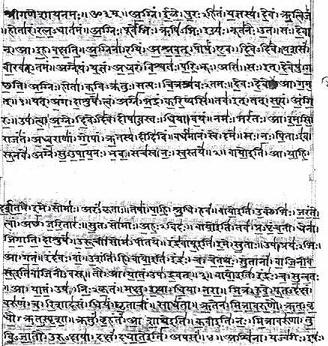 श्रीगणेशायनमः॥ॐ॥अग्निं।ईळे।पुरःऽहितं।यज्ञस्य।देवं।ऋत्विजं
।होतारं।रत्नऽधातमं॥अग्निः।पूर्वेभिः।ऋषिऽभिः।ईड्यः।नूतनैः।उत।सः।देवा
न्।आ।इह।वक्षति॥अग्निना।रयिं।अश्नवत्।पोषं।एव।दिवेऽदिवे।यशसं।
वीरवत्ऽतमं॥अग्ने।यं।यज्ञं।अध्वरं।विश्वतः।परिऽभूः।असि।सः।इत्।देवेषु।ग
च्छति॥अग्निः।होता।कविऽक्रतुः।सत्यः।चित्रश्रवःऽतमः।देवः।देवेभिः।आ।गम
त्॥१॥यत्।अंग।दाशुषे।त्वं।अग्ने।भद्रं।करिष्यसि।तव।इत्।तत्।सत्यं।अंगि
रः॥उप।त्वा।अग्ने।दिवेऽदिवे।दोषाऽवस्तः।धिया।वयं।नमः।भरंतः।आ।इमसि॥
राजंतं।अध्वराणां।गोपां।ऋतस्य।दीदिविं।वर्धमानं।स्वे।दमे॥सः।नः।पिताऽइव।
सूनवे।अग्ने।सुऽउपायनः।भव।सचस्व।नः।स्वस्तये॥२॥वायो इति।आ।याहि।
दर्शत।इमे।सोमाः।अरंऽकृताः।तेषां।पाहि।श्रुधि।हवं॥वायो इति।उक्थेभिः।जरंते।
त्वां।अच्छ।जरितारः।सुतऽसोमाः।अहःऽविदः॥वायो इति।तव।प्रऽपृंचती।धेना।
जिगाति।दाशुषे।उरूची।सोमऽपीतये॥इंद्रवायू इति।इमे।सुताः।उप।प्रयःऽभिः।
आ।गतं।इंदवः।वां।उशंति।हि॥वायो इति।इंद्रः।च।चेतथः।सुतानां।वाजिनीव
सू इति वाजिनीऽवसू।तौ।आ।यातं।उप।द्रवत्॥३॥वायो इति।इंद्रः।च।सुन्वतः
।आ।यातं।उप।निःऽकृतं।मक्षु।इत्था।धिया।नरा॥मित्रं।हुवे।पूतऽदक्षं।
वरुणं।च।रिशादसं।धियं।घृताचीं।साधंता॥ऋतेन।मित्रावरुणौ।ऋतऽवृ
धौ।ऋतऽस्पृशा।क्रतुं।बृहंतं।आशाथे इति॥कवी इति।नः।मित्रावरुणा।तु
विऽजातौ।उरुऽक्षया।दक्षं।दधाते इति।अपसं॥४॥अश्विना।यज्वरीः।इषः।